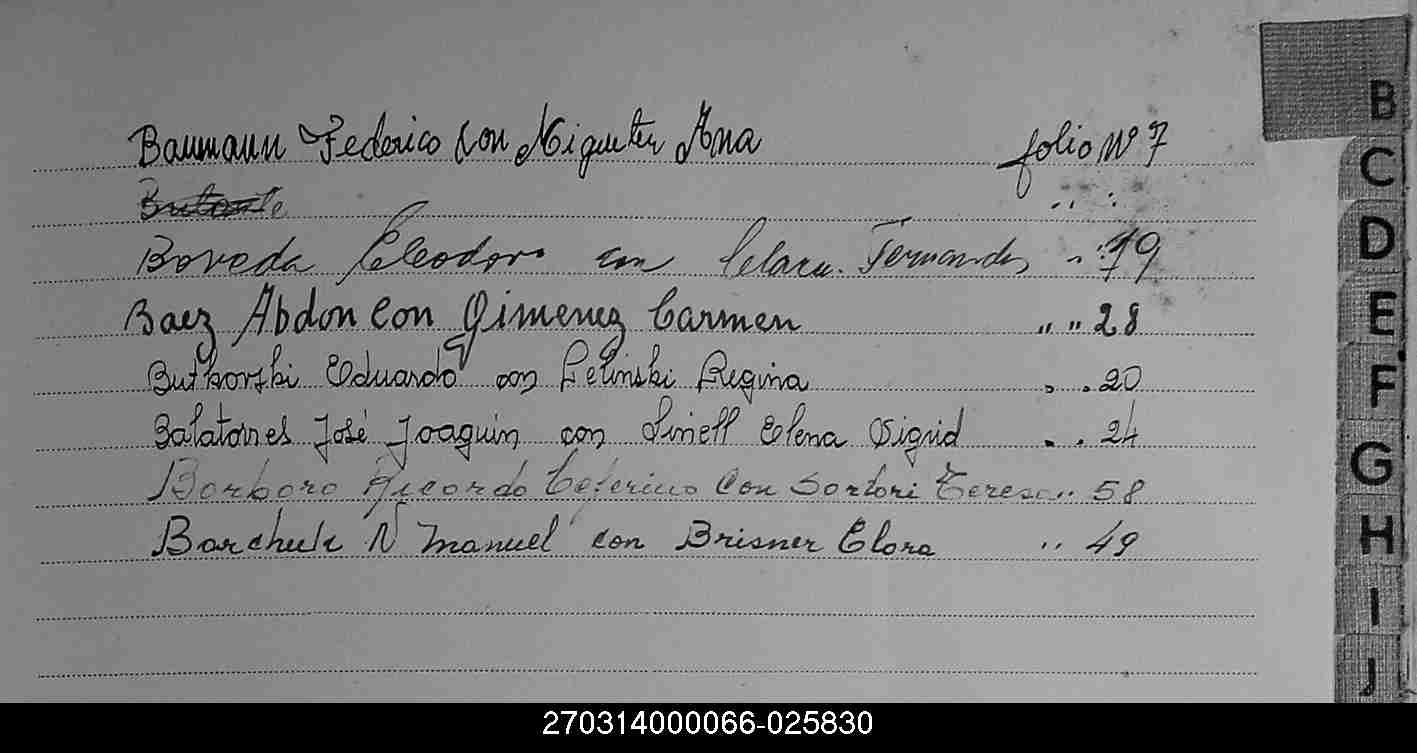 Baumann Federico con Migueter Ana folio Nº 7
Boveda Eleodoro con Clara Fernandes " 19
Baez Abdon Con Gimenez Carmen " " 28
Butkorski Eduardo con Pelinski Regina " " 20
José Joaquin con Sinell Elena Sigrid " " 24
Borboro Ricordo Ceferino Con Sortori Teresa " 58
Barchuk N Manuel con Brisner Elora " 49
B
C
D
E
F
G
H
I
J
270314000066-025830